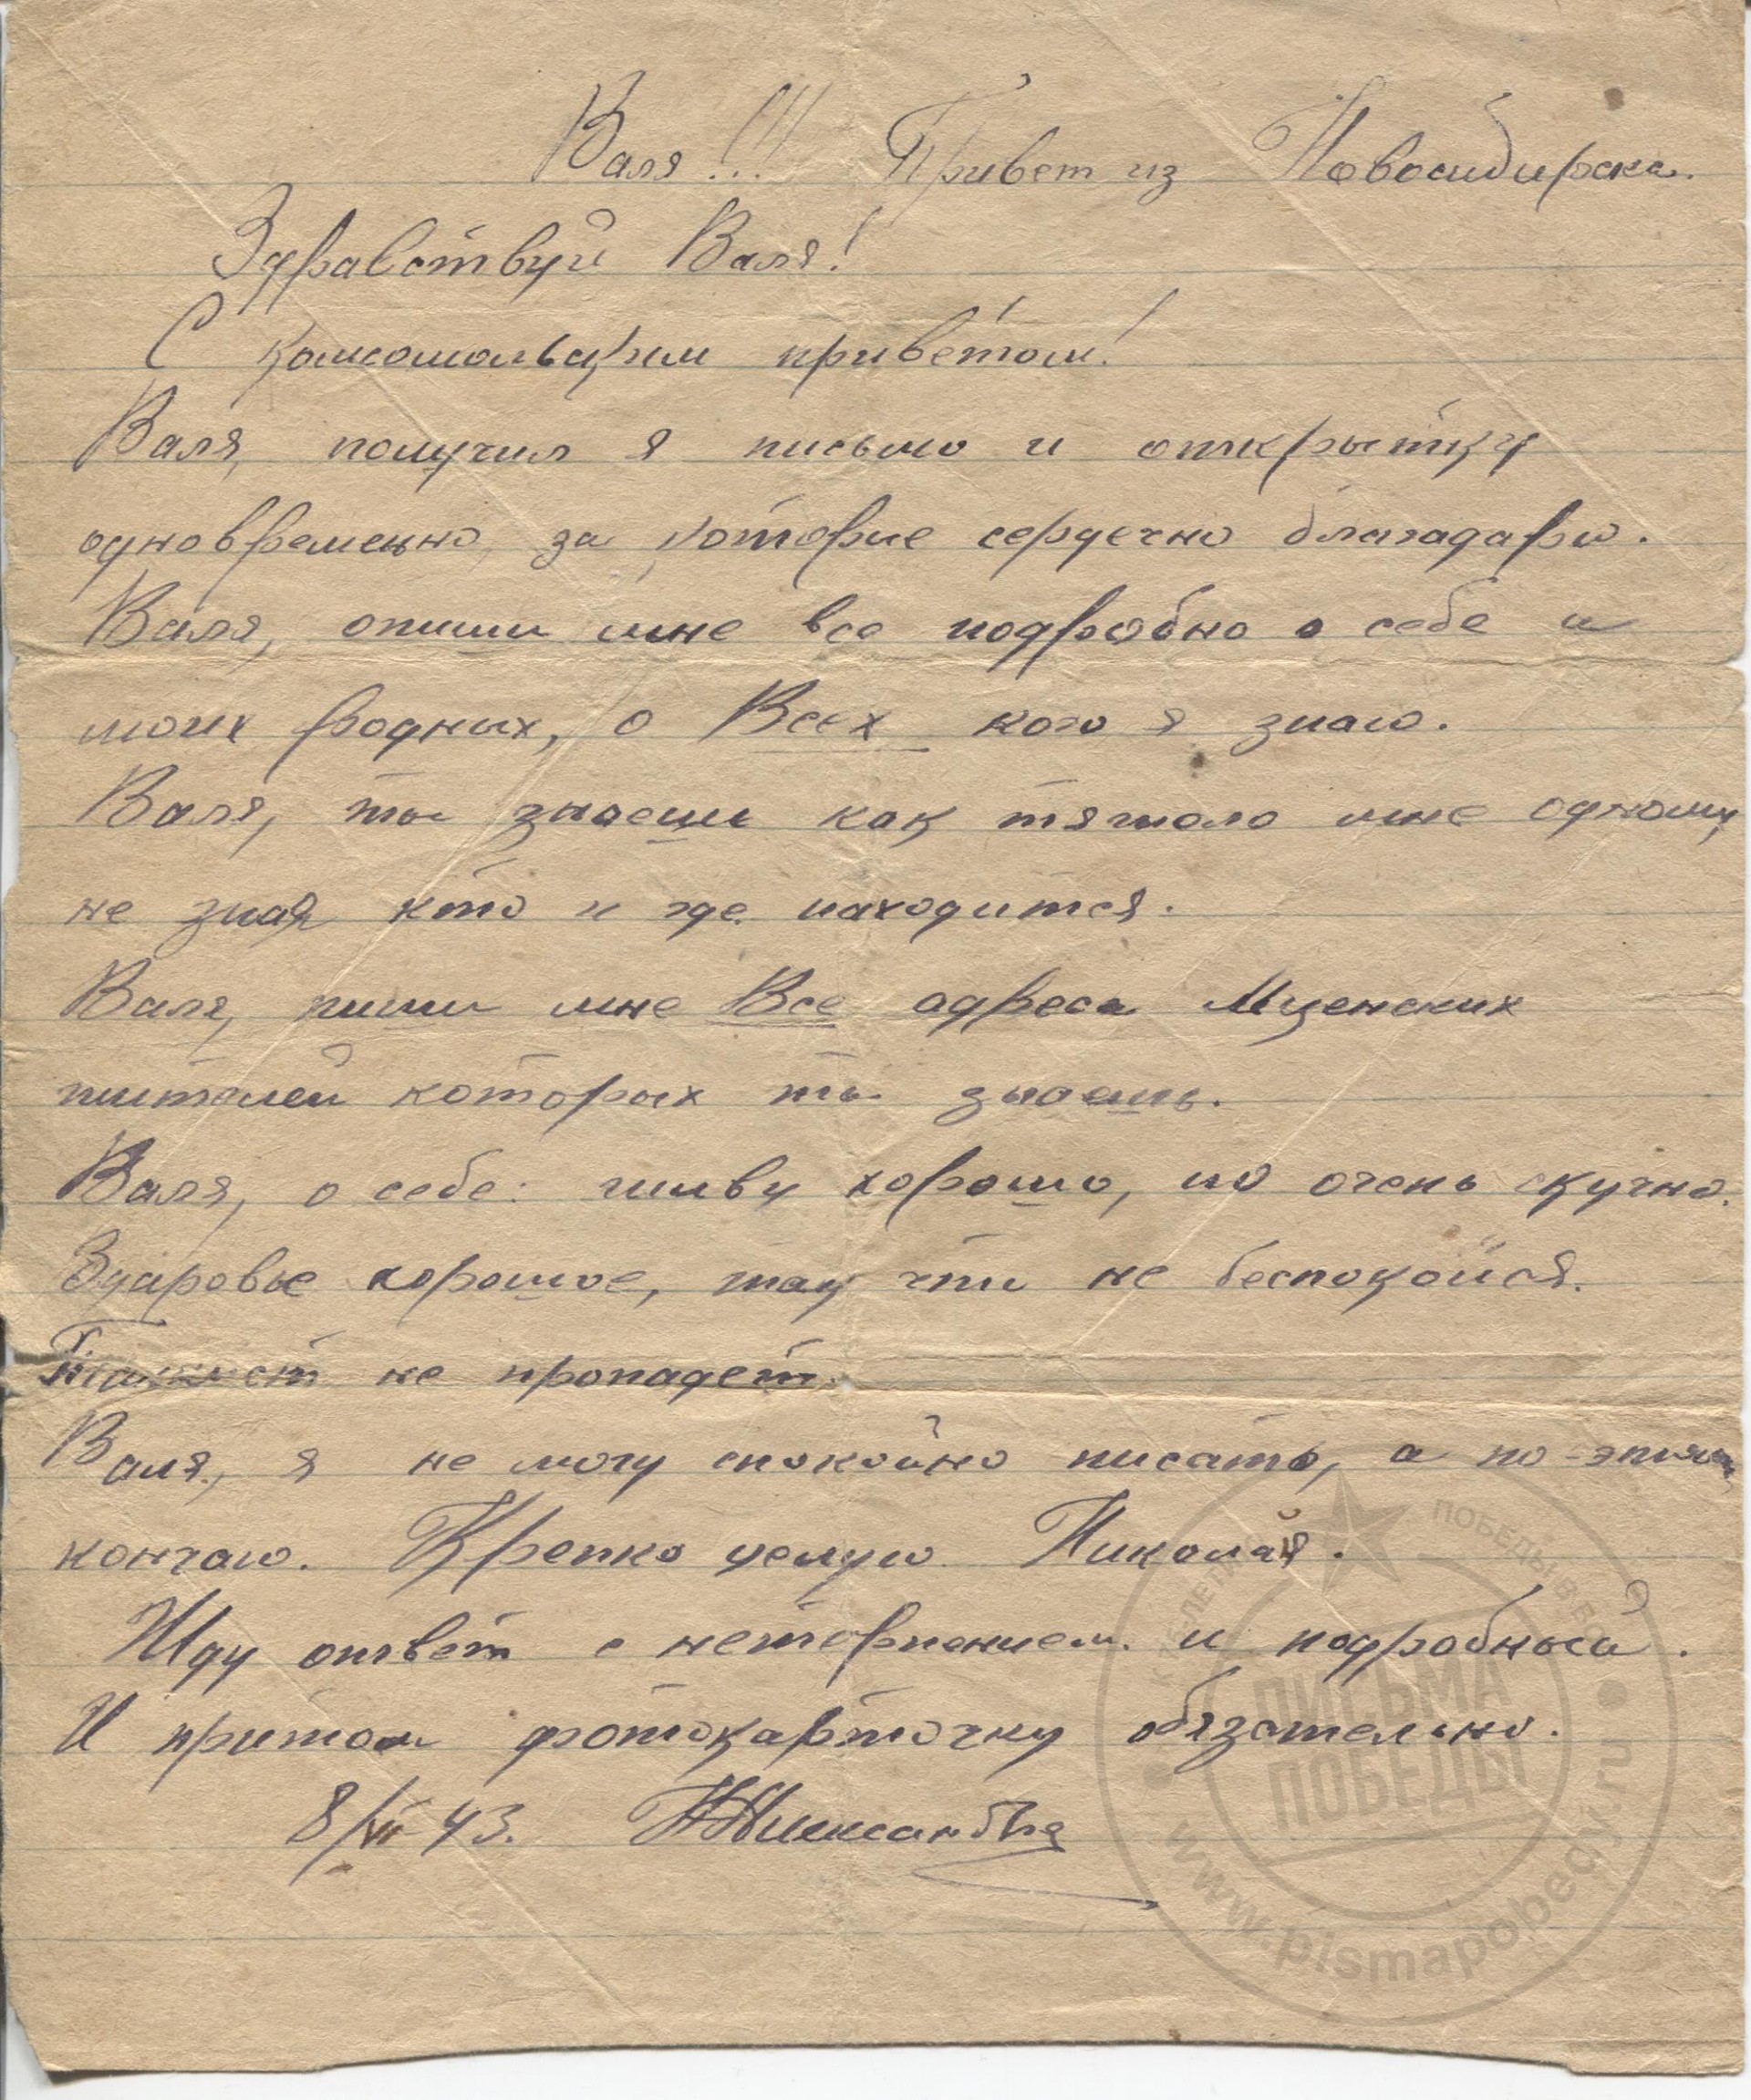 Валя!!! Привет из Новосибирска.
Здравствуй Валя!
С комсомольским приветом!
Валя, получил я письмо и открытку
одновременно, за которые сердечно благадарю.
Валя, опиши мне все подробно о себе и
моих родных, о Всех кого я знаю.
Валя, ты знаешь как тяжоло мне одному,
не зная кто и где находится.
Валя, пиши мне Все адреса Мценских
жителей которых ты знаешь.
Валя, о себе: живу хорошо, но очень скучно.
Здаровье хорошое, так что не беспокойся.
Танкист не пропадет.
Валя, я не могу спокойно писать, а по-этому
кончаю. Крепко целую Николай.
Жду ответ с нетерпением и подробный.
И притом фотокарточку обязательно.
8/VII-43.
ПОБЕДЫ В ВО
ПИСЬМА
ПОБЕДЫ
www.pismapobedy.ru